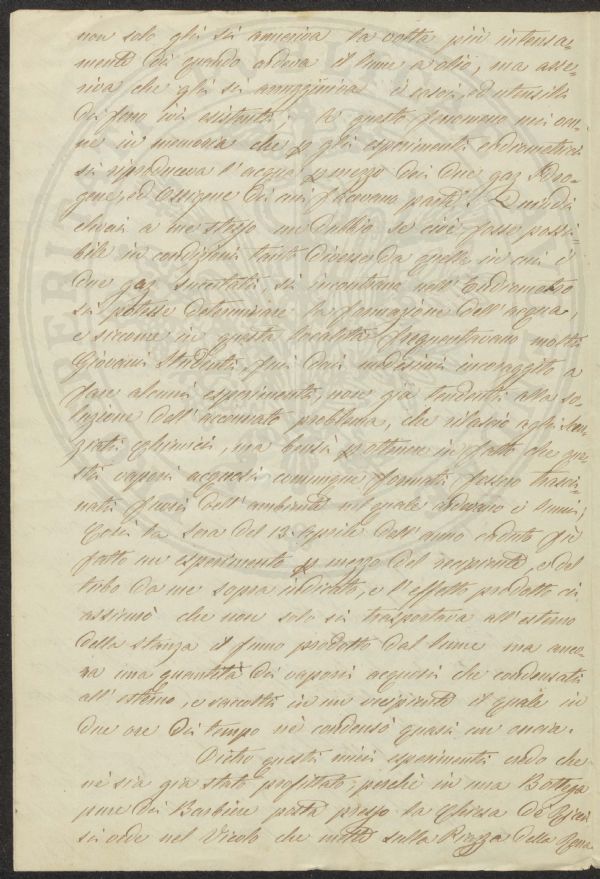 non solo gli si anneriva la volta più intensa-
mente di quando ardeva il lume a olio, ma asse-
riva che gli si arrugginiva i rasoi, ed utensili
di ferro ivi esistenti; A questo fenomeno mi ven-
ne in memoria che p gli esperimenti eudiometrici
si riproduceva l'acqua p mezzo dei due gaz Idro-
gene, ed Ossigene di cui facevano parte. Quindi
chiesi a me stesso un dubbio se ciò fosse possi-
bile in condizioni tanto diverse da quella in cui i
due gaz suscitati, si incontrano nell'Eudiometro
si potesse determinare la formazione dell'acqua,
e siccome in questa località frequentavano molti
Giovani Studenti, fui dai medesimi incoraggito a
fare alcuni esperimenti, non già tendenti alla so-
luzione dell'accennato problema, che rilascio agli scien-
ziati Chimici, ma bensì p ottenere in fatto che que-
sti vapori acquosi comunque formati fossero trasci-
nati fuori dell'ambiente nel quale ardevano i lumi;
Così la sera del 13 Aprile dell'anno caduto fù
fatto un esperimento p mezzo del recipiente, e del
tubo da me sopra indicato, e l'effetto prodotto ci
assicurò che non solo si trasportava all'esterno
della stanza il fumo prodotto dal lume ma anco-
ra una quantità di vapori acquosi che condensati
all'esterno, e raccolti in un recipiente il quale in
due ore di tempo nè condensò quasi un oncia.
Dietro questi miei esperimenti credo che
nè sia già stato profittato, perchè in una Bottega
pure di Barbiere posta presso la Chiesa de
si vede nel Vicolo che mette sulla Piazza della